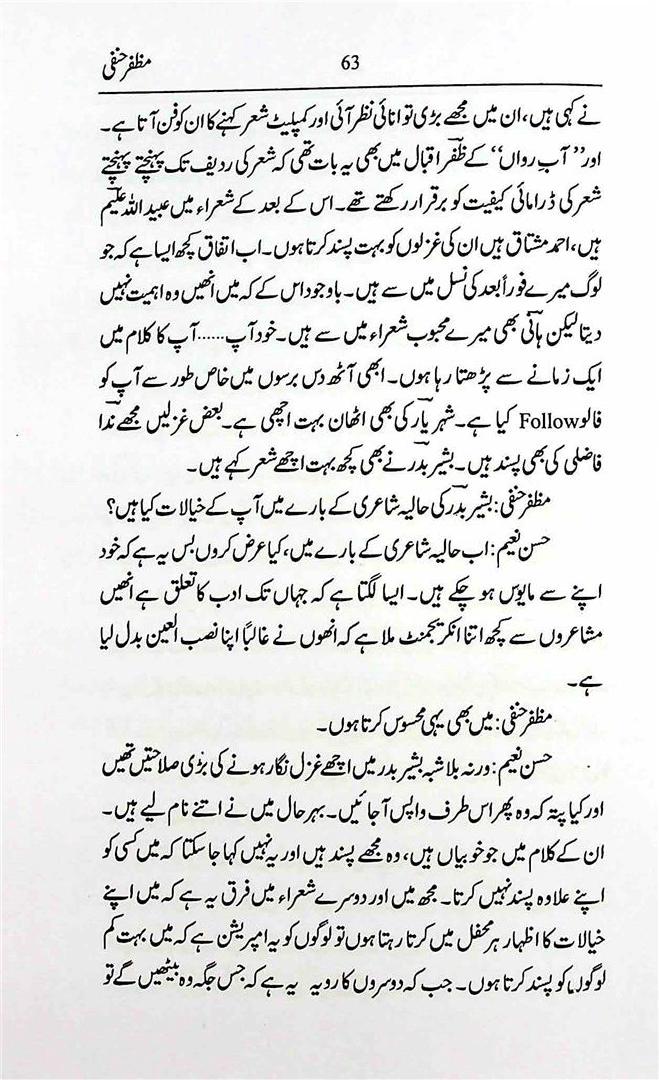 مظفر حنفی
63
نے کہی ہیں، ان میں مجھے بڑی توانائی نظر آئی اور کمپلیٹ شعر کہنے کا ان کو فن آتا ہے۔
اور ’’آبِ رواں‘‘ کے ظفر اقبال میں بھی یہ بات تھی کہ شعر کی ردیف تک پہنچتے پہنچتے
شعر کی ڈرامائی کیفیت کو برقرار رکھتے تھے۔ اس کے بعد کے شعراء میں عبید اللہ علیم
ہیں، احمد مشتاق ہیں ان کی غزلوں کو بہت پسند کرتا ہوں۔ اب اتفاق کچھ ایسا ہے کہ جو
لوگ میرے فوراً بعد کی نسل میں سے ہیں۔ باوجود اس کے کہ میں انھیں وہ اہمیت نہیں
دیتا لیکن بانی بھی میرے محبوب شعراء میں سے ہیں۔ خود آپ...... آپ کا کلام میں
ایک زمانے سے پڑھتا رہا ہوں۔ ابھی آٹھ دس برسوں میں خاص طور سے آپ کو
فالو Follow کیا ہے۔ شہریار کی بھی اٹھان بہت اچھی ہے۔ بعض غزلیں مجھے ندا
فاضلی کی بھی پسند ہیں۔ بشیر بدر نے بھی کچھ بہت اچھے شعر کہے ہیں۔
مظفر حنفی: بشیر بدر کی حالیہ شاعری کے بارے میں آپ کے خیالات کیا ہیں؟
حسن نعیم: اب حالیہ شاعری کے بارے میں، کیا عرض کروں بس یہ ہے کہ خود
اپنے سے مایوس ہو چکے ہیں۔ ایسا لگتا ہے کہ جہاں تک ادب کا تعلق ہے انھیں
مشاعروں سے کچھ اتنا انکریجمنٹ ملا ہے کہ انھوں نے غالباً اپنا نصب العین بدل لیا
ہے۔
مظفر حنفی: میں بھی یہی محسوس کرتا ہوں۔
حسن نعیم: ورنہ بلاشبہ بشیر بدر میں اچھے غزل نگار ہونے کی بڑی صلاحتیں تھیں
اور کیا پتہ کہ وہ پھر اس طرف واپس آجائیں۔ بہرحال میں نے اتنے نام لیے ہیں۔
ان کے کلام میں جو خوبیاں ہیں، وہ مجھے پسند ہیں اور یہ نہیں کہا جاسکتا کہ میں کسی کو
اپنے علاوہ پسند نہیں کرتا۔ مجھ میں اور دوسرے شعراء میں فرق یہ ہے کہ میں اپنے
خیالات کا اظہار ہر محفل میں کرتا رہتا ہوں تو لوگوں کو یہ امپریشن ہے کہ میں بہت کم
لوگوں کو پسند کرتا ہوں۔ جب کہ دوسروں کا رویہ یہ ہے کہ جس جگہ وہ بیٹھیں گے تو